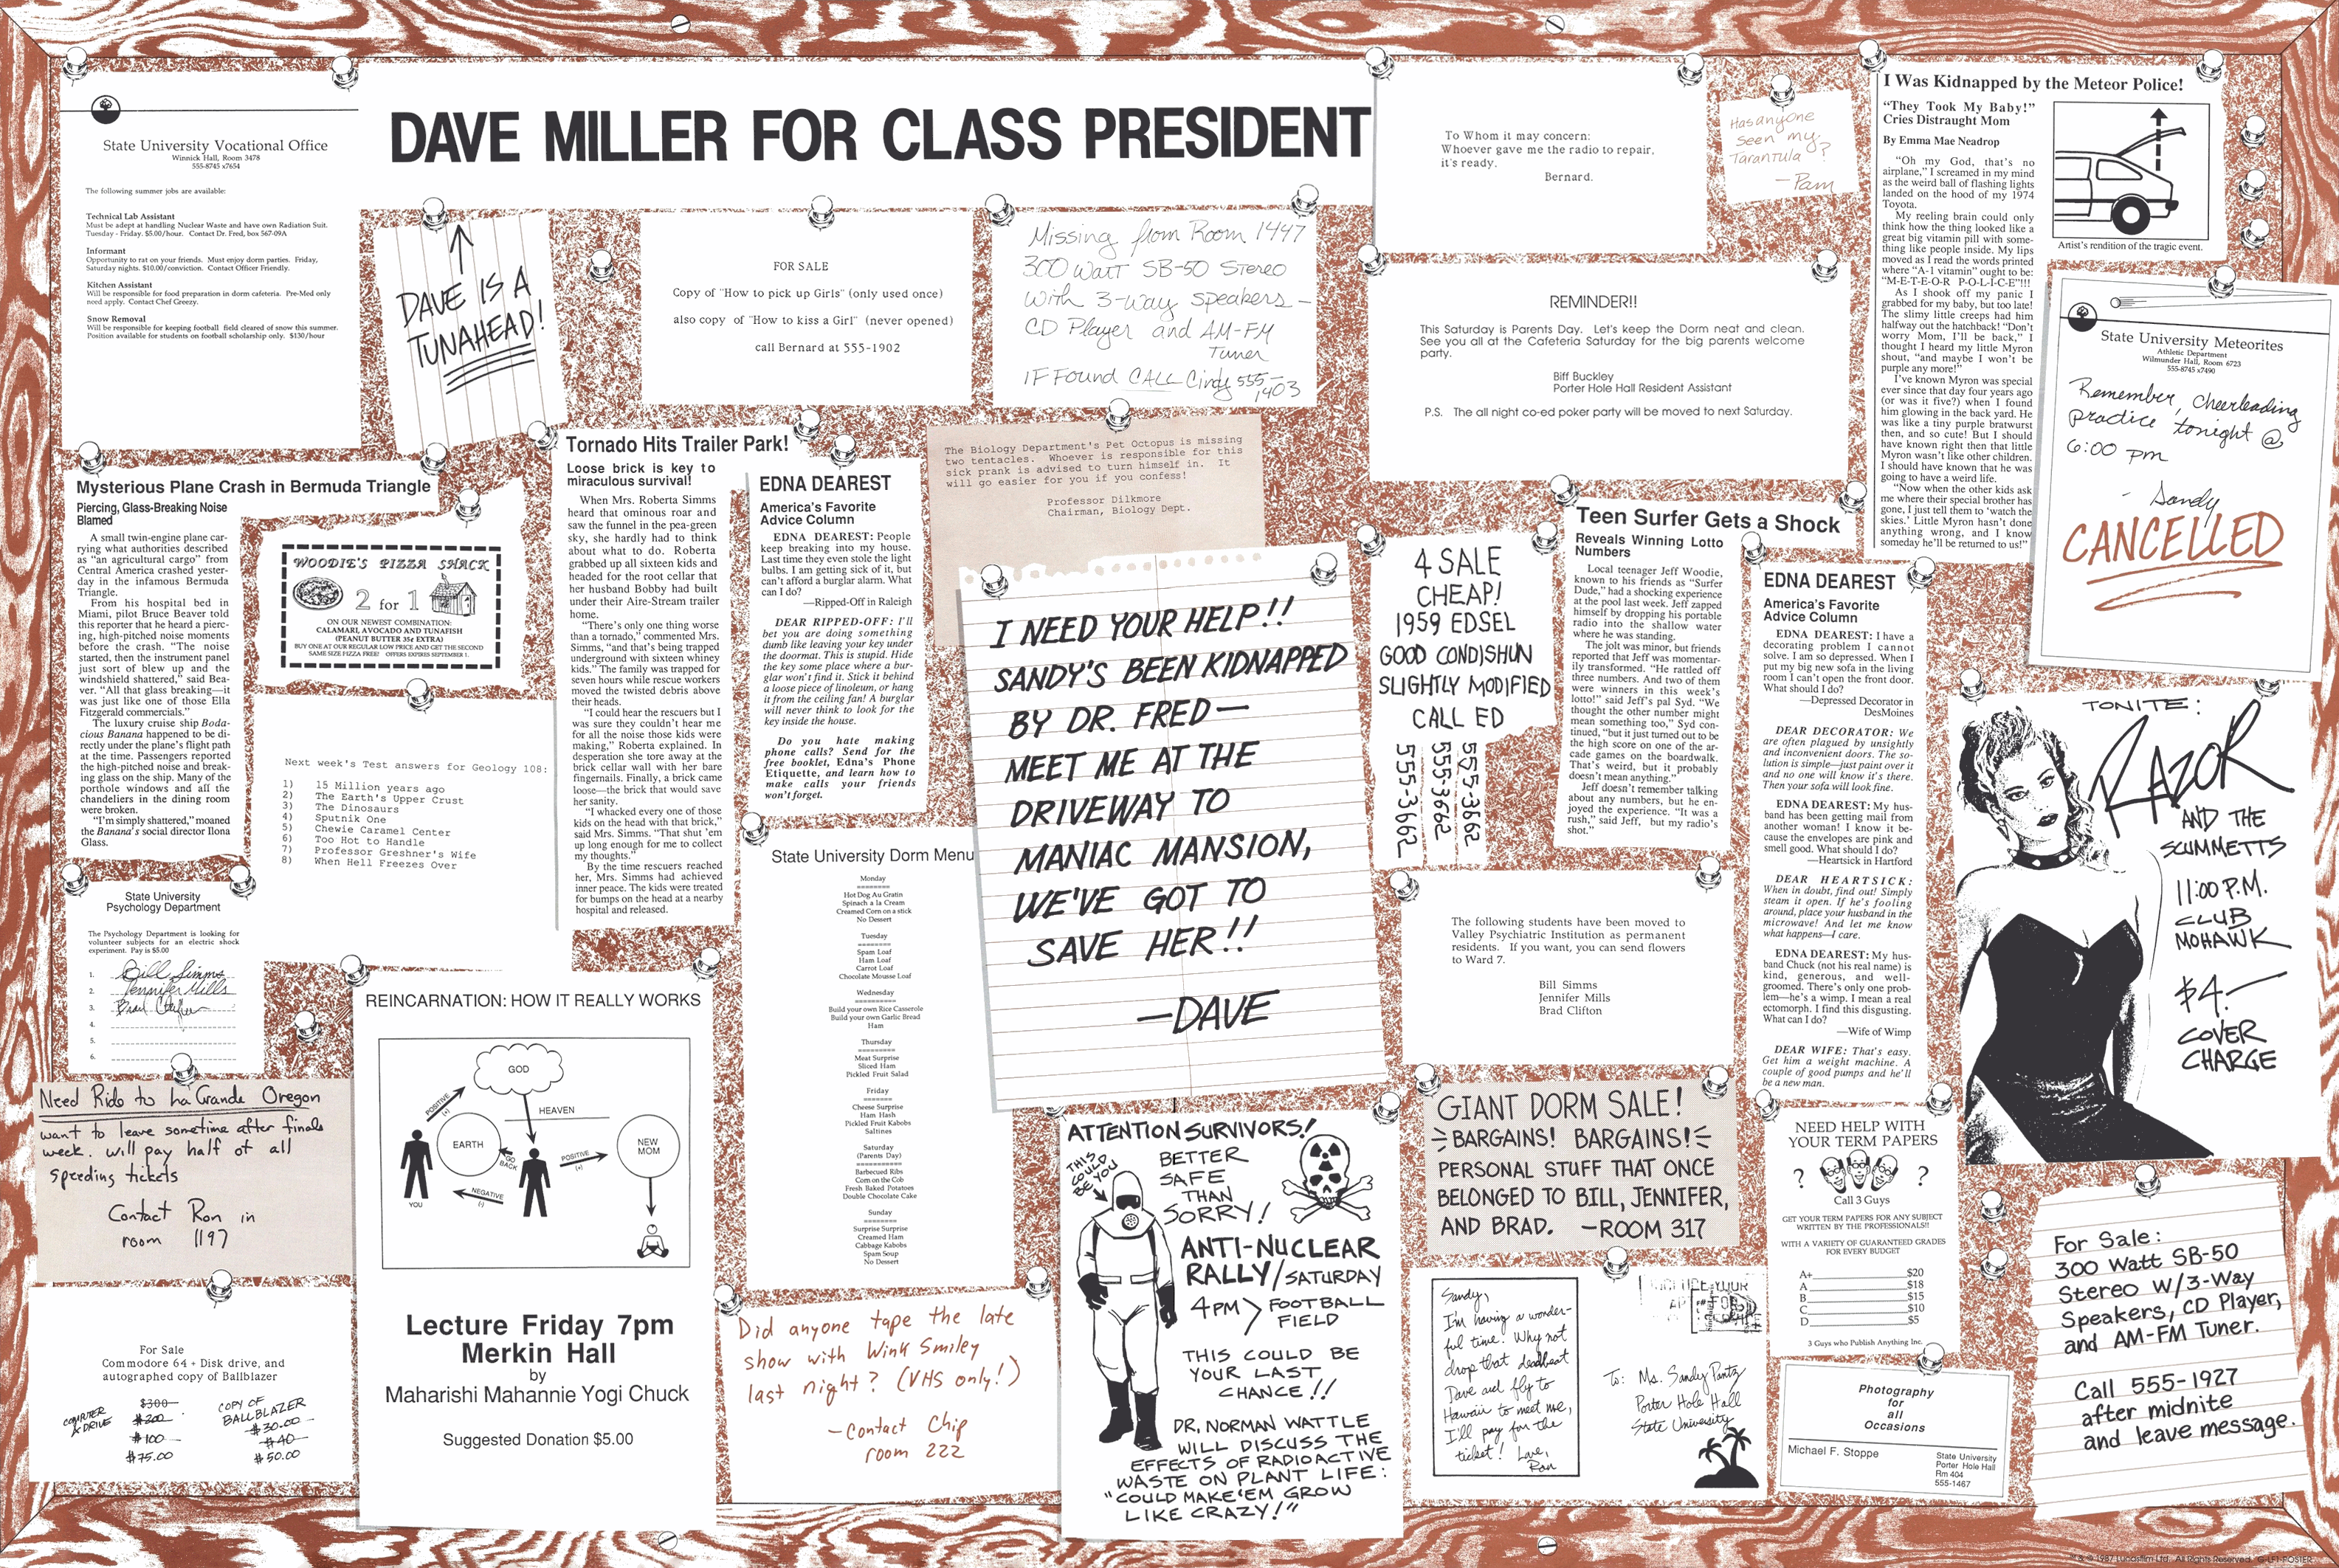 State University Vocational Office
Winnick Hall, Room 3478
555-8745 x7654
The following summer jobs are available:
Technical Lab Assistant
Must be adept at handling Nuclear Waste and have own Radiation Suit.
Tuesday - Friday. $5.00/hour. Contact Dr. Fred, box 567-09A
Informant
Opportunity to rat on your friends. Must enjoy dorm parties. Friday,
Saturday nights. $10.00/conviction. Contact Officer Friendly.
Kitchen Assistant
Will be responsible for food preparation in dorm cafeteria. Pre-Med only
need apply. Contact Chef Greezy.
Snow Removal
Will be responsible for keeping football field cleared of snow this summer.
Position available for students on football scholarship only. $130/hour
DAVE MILLER FOR CLASS PRESIDENT
DAVE IS A
TUNAHEAD!
FOR SALE
Copy of "How to pick up Girls" (only used once)
also copy of "How to kiss a Girl" (never opened)
call Bernard at 555-1902
Missing from Room 1447
300 Watt SB-50 Stereo
with 3-way speakers -
CD Player and AM-FM
Tuner
IF Found CALL Cindy 555-
1403
To Whom it may concern:
Whoever gave me the radio to repair,
it's ready.
Bernard.
Has anyone
seen my
Tarantula?
- Pam
I Was Kidnapped by the Meteor Police!
"They Took My Baby!"
Cries Distraught Mom
By Emma Mae Neadrop
"Oh my God, that's no
airplane," I screamed in my mind
as the weird ball of flashing lights
landed on the hood of my 1974
Toyota.
My reeling brain could only
think how the thing looked like a
great big vitamin pill with some-
thing like people inside. My lips
moved as I read the words printed
where "A-1 vitamin" ought to be:
"M-E-T-E-O-R P-O-L-I-C-E"!!!
As I shook off my panic I
grabbed for my baby, but too late!
The slimy little creeps had him
halfway out the hatchback! "Don't
worry Mom, I'll be back," I
thought I heard my little Myron
shout, "and maybe I won't be
purple any more!"
I've known Myron was special
ever since that day four years ago
(or was it five?) when I found
him glowing in the back yard. He
was like a tiny purple bratwurst
then, and so cute! But I should
have known right then that little
Myron wasn't like other children.
I should have known that he was
going to have a weird life.
"Now when the other kids ask
me where their special brother has
gone, I just tell them to 'watch the
skies.' Little Myron hasn't done
anything wrong, and I know
someday he'll be returned to us!"
Artist's rendition of the tragic event.
REMINDER!!
This Saturday is Parents Day. Let's keep the Dorm neat and clean.
See you all at the Cafeteria Saturday for the big parents welcome
party.
Biff Buckley
Porter Hole Hall Resident Assistant
P.S. The all night co-ed poker party will be moved to next Saturday.
State University Meteorites
Athletic Department
Wilmunder Hall, Room 6723
555-8745 x7490
Remember, cheerleading
practice tonight @
6:00 pm
- Sandy
CANCELLED
Mysterious Plane Crash in Bermuda Triangle
Piercing, Glass-Breaking Noise
Blamed
A small twin-engine plane car-
rying what authorities described
as "an agricultural cargo" from
Central America crashed yester-
day in the infamous Bermuda
Triangle.
From his hospital bed in
Miami, pilot Bruce Beaver told
this reporter that he heard a pierc-
ing, high-pitched noise moments
before the crash. "The noise
started, then the instrument panel
just sort of blew up and the
windshield shattered," said Bea-
ver. "All that glass breaking—it
was just like one of those Ella
Fitzgerald commercials."
The luxury cruise ship Boda-
cious Banana happened to be di-
rectly under the plane's flight path
at the time. Passengers reported
the high-pitched noise and break-
ing glass on the ship. Many of the
porthole windows and all the
chandeliers in the dining room
were broken.
"I'm simply shattered," moaned
the Banana's social director Ilona
Glass.
WOODIE'S PIZZA SHACK
2 for 1
ON OUR NEWEST COMBINATION:
CALAMARI, AVOCADO AND TUNAFISH
(PEANUT BUTTER 35¢ EXTRA)
BUY ONE AT OUR REGULAR LOW PRICE AND GET THE SECOND
SAME SIZE PIZZA FREE! OFFERS EXPIRES SEPTEMBER 1.
Next week's Test answers for Geology 108:
1) 15 Million years ago
2) The Earth's Upper Crust
3) The Dinosaurs
4) Sputnik One
5) Chewie Caramel Center
6) Too Hot to Handle
7) Professor Greshner's Wife
8) When Hell Freezes Over
Tornado Hits Trailer Park!
Loose brick is key to
miraculous survival!
When Mrs. Roberta Simms
heard that ominous roar and
saw the funnel in the pea-green
sky, she hardly had to think
about what to do. Roberta
grabbed up all sixteen kids and
headed for the root cellar that
her husband Bobby had built
under their Aire-Stream trailer
home.
"There's only one thing worse
than a tornado," commented Mrs.
Simms, "and that's being trapped
underground with sixteen whiney
kids." The family was trapped for
seven hours while rescue workers
moved the twisted debris above
their heads.
"I could hear the rescuers but I
was sure they couldn't hear me
for all the noise those kids were
making," Roberta explained. In
desperation she tore away at the
brick cellar wall with her bare
fingernails. Finally, a brick came
loose—the brick that would save
her sanity.
"I whacked every one of those
kids on the head with that brick,"
said Mrs. Simms. "That shut 'em
up long enough for me to collect
my thoughts."
By the time rescuers reached
her, Mrs. Simms had achieved
inner peace. The kids were treated
for bumps on the head at a nearby
hospital and released.
EDNA DEAREST
America's Favorite
Advice Column
EDNA DEAREST: People
keep breaking into my house.
Last time they even stole the light
bulbs. I am getting sick of it, but
can't afford a burglar alarm. What
can I do?
—Ripped-Off in Raleigh
DEAR RIPPED-OFF: I'll
bet you are doing something
dumb like leaving your key under
the doormat. This is stupid. Hide
the key some place where a bur-
glar won't find it. Stick it behind
a loose piece of linoleum, or hang
it from the ceiling fan! A burglar
will never think to look for the
key inside the house.
Do you hate making
phone calls? Send for the
free booklet, Edna's Phone
Etiquette, and learn how to
make calls your friends
won't forget.
The Biology Department's Pet Octopus is missing
two tentacles. Whoever is responsible for this
sick prank is advised to turn himself in. It
will go easier for you if you confess!
Professor Dilkmore
Chairman, Biology Dept.
I NEED YOUR HELP!!
SANDY'S BEEN KIDNAPPED
BY DR. FRED—
MEET ME AT THE
DRIVEWAY TO
MANIAC MANSION,
WE'VE GOT TO
SAVE HER!!
—DAVE
4 SALE
CHEAP!
1959 EDSEL
GOOD CONDISHUN
SLIGHTLY MODIFIED
CALL ED
555-3662
555-3662
555-3662
Teen Surfer Gets a Shock
Reveals Winning Lotto
Numbers
Local teenager Jeff Woodie,
known to his friends as "Surfer
Dude," had a shocking experience
at the pool last week. Jeff zapped
himself by dropping his portable
radio into the shallow water
where he was standing.
"The jolt was minor, but friends
reported that Jeff was momentar-
ily transformed. "He rattled off
three numbers. And two of them
were winners in this week's
lotto!" said Jeff's pal Syd. "We
thought the other number might
mean something too," Syd con-
tinued, "but it just turned out to be
the high score on one of the ar-
cade games on the boardwalk.
That's weird, but it probably
doesn't mean anything."
Jeff doesn't remember talking
about any numbers, but he en-
joyed the experience. "It was a
rush," said Jeff, but my radio's
shot."
EDNA DEAREST
America's Favorite
Advice Column
EDNA DEAREST: I have a
decorating problem I cannot
solve. I am so depressed. When I
put my big new sofa in the living
room I can't open the front door.
What should I do?
—Depressed Decorator in
DesMoines
DEAR DECORATOR: We
are often plagued by unsightly
and inconvenient doors. The so-
lution is simple—just paint over it
and no one will know it's there.
Then your sofa will look fine.
EDNA DEAREST: My hus-
band has been getting mail from
another woman! I know it be-
cause the envelopes are pink and
smell good. What should I do?
—Heartsick in Hartford
DEAR HEARTSICK:
When in doubt, find out! Simply
steam it open. If he's fooling
around, place your husband in the
microwave! And let me know
what happens—I care.
EDNA DEAREST: My hus-
band Chuck (not his real name) is
kind, generous, and well-
groomed. There's only one prob-
lem—he's a wimp. I mean a real
ectomorph. I find this disgusting.
What can I do?
—Wife of Wimp
DEAR WIFE: That's easy.
Get him a weight machine. A
couple of good pumps and he'll
be a new man.
TONITE:
RAZOR
AND THE
SCUMMETTS
11:00 P.M.
CLUB
MOHAWK
$4.—
COVER
CHARGE
State University
Psychology Department
The Psychology Department is looking for
volunteer subjects for an electric shock
experiment. Pay is $5.00
1. Bill Simms
2. Jennifer Mills
3. Brad Clifton
4.
5.
6.
State University Dorm Menu
Monday
Hot Dog Au Gratin
Spinach a la Cream
Creamed Corn on a stick
No Dessert
Tuesday
Spam Loaf
Ham Loaf
Carrot Loaf
Chocolate Mousse Loaf
Wednesday
Build your own Rice Casserole
Build your own Garlic Bread
Ham
Thursday
Meat Surprise
Sliced Ham
Pickled Fruit Salad
Friday
Cheese Surprise
Ham Hash
Pickled Fruit Kabobs
Saltines
Saturday
(Parents Day)
Barbecued Ribs
Corn on the Cob
Fresh Baked Potatoes
Double Chocolate Cake
Sunday
Surprise Surprise
Creamed Ham
Cabbage Kabobs
Spam Soup
No Dessert
The following students have been moved to
Valley Psychiatric Institution as permanent
residents. If you want, you can send flowers
to Ward 7.
Bill Simms
Jennifer Mills
Brad Clifton
Need Ride to La Grande Oregon
want to leave sometime after finals
week. will pay half of all
speeding tickets
Contact Ron in
room 1197
REINCARNATION: HOW IT REALLY WORKS
GOD
POSITIVE
(+)
HEAVEN
EARTH
GO
BACK
POSITIVE
(+)
NEW
MOM
NEGATIVE
(-)
YOU
Lecture Friday 7pm
Merkin Hall
by
Maharishi Mahannie Yogi Chuck
Suggested Donation $5.00
For Sale
Commodore 64 + Disk drive, and
autographed copy of Ballblazer
COMPUTER
& DRIVE
$300
$200
$100
$75.00
COPY OF
BALLBLAZER
$30.00
$40
$50.00
Did anyone tape the late
show with Wink Smiley
last night? (VHS only!)
- Contact Chip
room 222
ATTENTION SURVIVORS!
THIS
COULD
BE YOU
BETTER
SAFE
THAN
SORRY!
ANTI-NUCLEAR
RALLY/SATURDAY
4PM > FOOTBALL
FIELD
THIS COULD BE
YOUR LAST
CHANCE!!
DR. NORMAN WATTLE
WILL DISCUSS THE
EFFECTS OF RADIOACTIVE
WASTE ON PLANT LIFE:
"COULD MAKE 'EM GROW
LIKE CRAZY!"
GIANT DORM SALE!
BARGAINS! BARGAINS!
PERSONAL STUFF THAT ONCE
BELONGED TO BILL, JENNIFER,
AND BRAD. —ROOM 317
Sandy,
I'm having a wonder-
ful time! Why not
drop that deadbeat
Dave and fly to
Hawaii to meet me,
I'll pay for the
ticket! Love,
Ron
To: Ms. Sandy Pantz
Porter Hole Hall
State University
NEED HELP WITH
YOUR TERM PAPERS
? ?
Call 3 Guys
GET YOUR TERM PAPERS FOR ANY SUBJECT
WRITTEN BY THE PROFESSIONALS!!
WITH A VARIETY OF GUARANTEED GRADES
FOR EVERY BUDGET
A+ $20
A $18
B $15
C $10
D $5
3 Guys who Publish Anything Inc.
Photography
for
all
Occasions
Michael F. Stoppe
State University
Porter Hole Hall
Rm 404
555-1467
For Sale:
300 Watt SB-50
Stereo W/3-Way
Speakers, CD Player,
and AM-FM Tuner.
Call 555-1927
after midnite
and leave message.
™ & © 1987 Lucasfilm Ltd. All Rights Reserved.